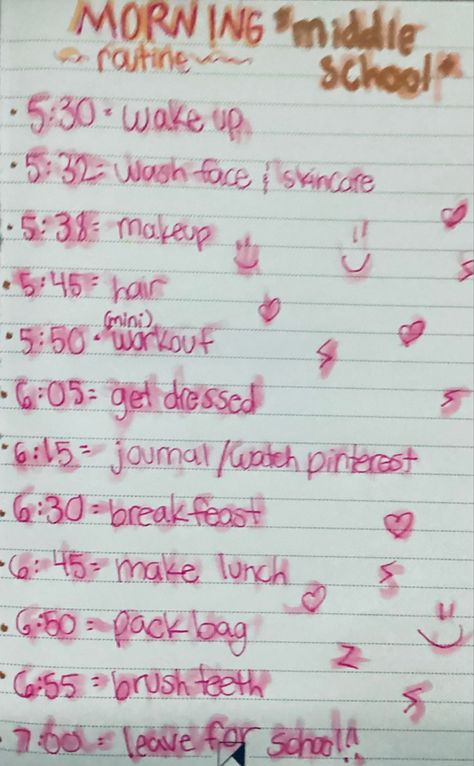 MORNING "middle
~ routine ~ school"
• 5:30 = wake up
• 5:32 = wash face & skincare
• 5:38 = makeup
• 5:45 = hair
• 5:50 = (mini) workout
• 6:05 = get dressed
• 6:15 = journal/watch pinterest
• 6:30 = breakfeast
• 6:45 = make lunch
• 6:50 = pack bag
• 6:55 = brush teeth
• 7:00 = leave for school!!